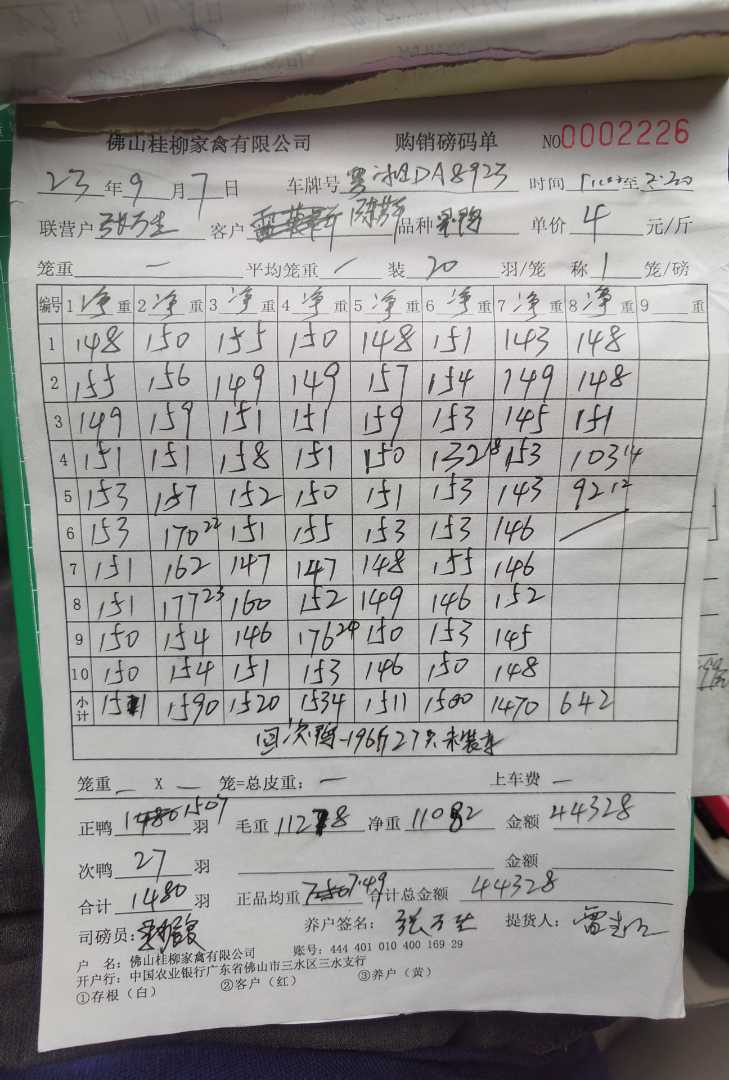 佛山桂柳家禽有限公司 购销磅码单 NO0002226
23年9月7日 车牌号 DA8923 时间 至
联营户 张万生 客户 品种 单价 4 元/斤
笼重 一 平均笼重 一 装 20 羽/笼 称 1 笼/磅
编号 1净重 2净重 3净重 4净重 5净重 6净重 7净重 8净重 9 重
1 148 150 155 150 148 151 143 148
2 155 156 149 149 157 154 149 148
3 149 159 151 151 159 153 145 151
4 151 151 158 151 150 132 18 153 103 14
5 153 157 152 150 151 153 143 92 12
6 153 170 22 151 155 153 153 146
7 151 162 147 147 148 155 146
8 151 177 23 160 152 149 146 152
9 150 154 146 176 24 150 153 145
10 150 154 151 153 146 150 148
小计 1511 1590 1520 1534 1511 1500 1470 642
回次鸭-196斤27只未装车
笼重 一 X 一 笼=总皮重: 一 上车费 一
正鸭 1507 羽 毛重 11278 净重 11082 金额 44328
次鸭 27 羽 金额
合计 1480 羽 正品均重 7.49 合计总金额 44328
司磅员: 养户签名: 张万生 提货人:
户 名: 佛山桂柳家禽有限公司 账号: 444 401 010 400 169 29
开户行: 中国农业银行广东省佛山市三水区三水支行
①存根(白) ②客户(红) ③养户(黄)